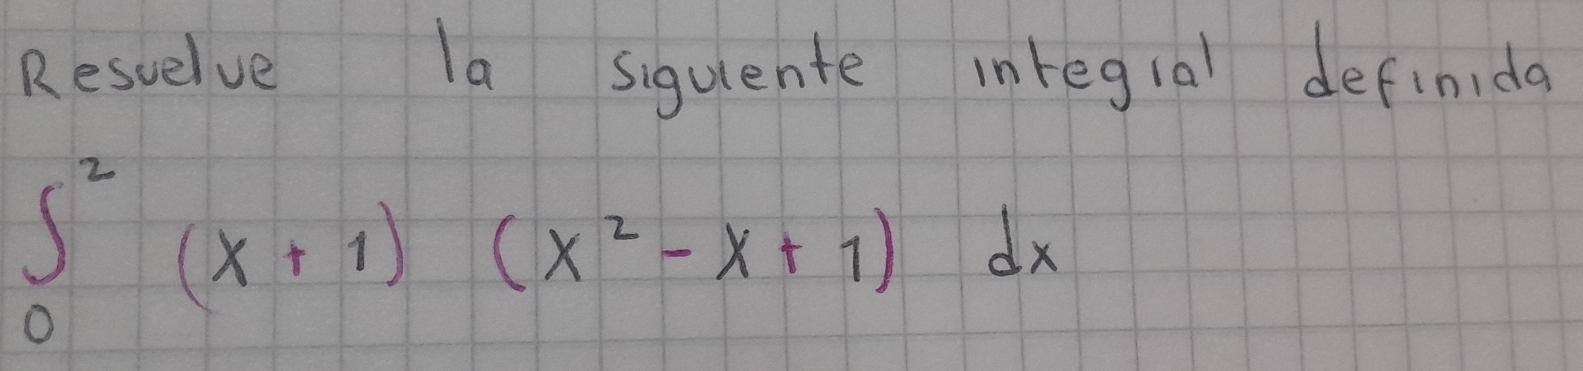 Resuelve la siguiente integral definida
∫₀² (x + 1) (x² - x + 1) dx